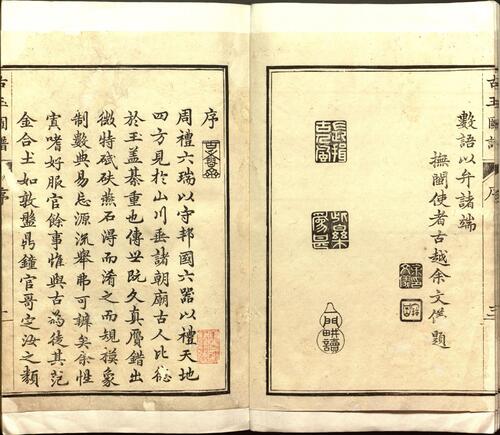 數語以弁諸端
撫閩使者古越余文儀題
序
周禮六瑞以守邦國六器以禮天地
四方見於山川垂諸朝廟古人比德
於玉蓋綦重也傳世既久真贗錯出
微特碔砆燕石淂而淆之而規模象
制數典易忘源流舉弗可辨矣余性
寡嗜好服官餘事惟與古為徒其范
金合土如敦盤鼎鐘官哥定汝之類
古玉圖譜
序